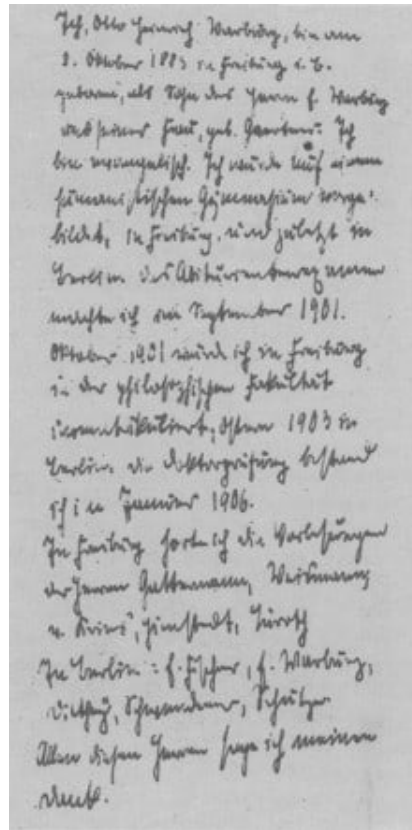 Ich, Otto Heinrich Warburg, bin am
8. Oktober 1883 in Freiburg i. B.
geboren, als Sohn des Herrn E. Warburg
und seiner Frau, geb. Gaertner. Ich
bin evangelisch. Ich wurde auf einem
humanistischen Gymnasium vorge-
bildet, in Freiburg, und zuletzt in
Berlin. Das Abiturientenexamen
machte ich im September 1901.
Oktober 1901 wurde ich in Freiburg
in der philosophischen Fakultät
immatrikuliert, Ostern 1903 in
Berlin. Die Doktorprüfung bestand
ich im Januar 1906.
In Freiburg hörte ich die Vorlesungen
der Herren Gattermann, Weismann,
v. Kries, Himstedt, Lüroth
In Berlin: E. Fischer, E. Warburg,
Dilthey, Schwendener,
Allen diesen Herren sage ich meinen
Dank.